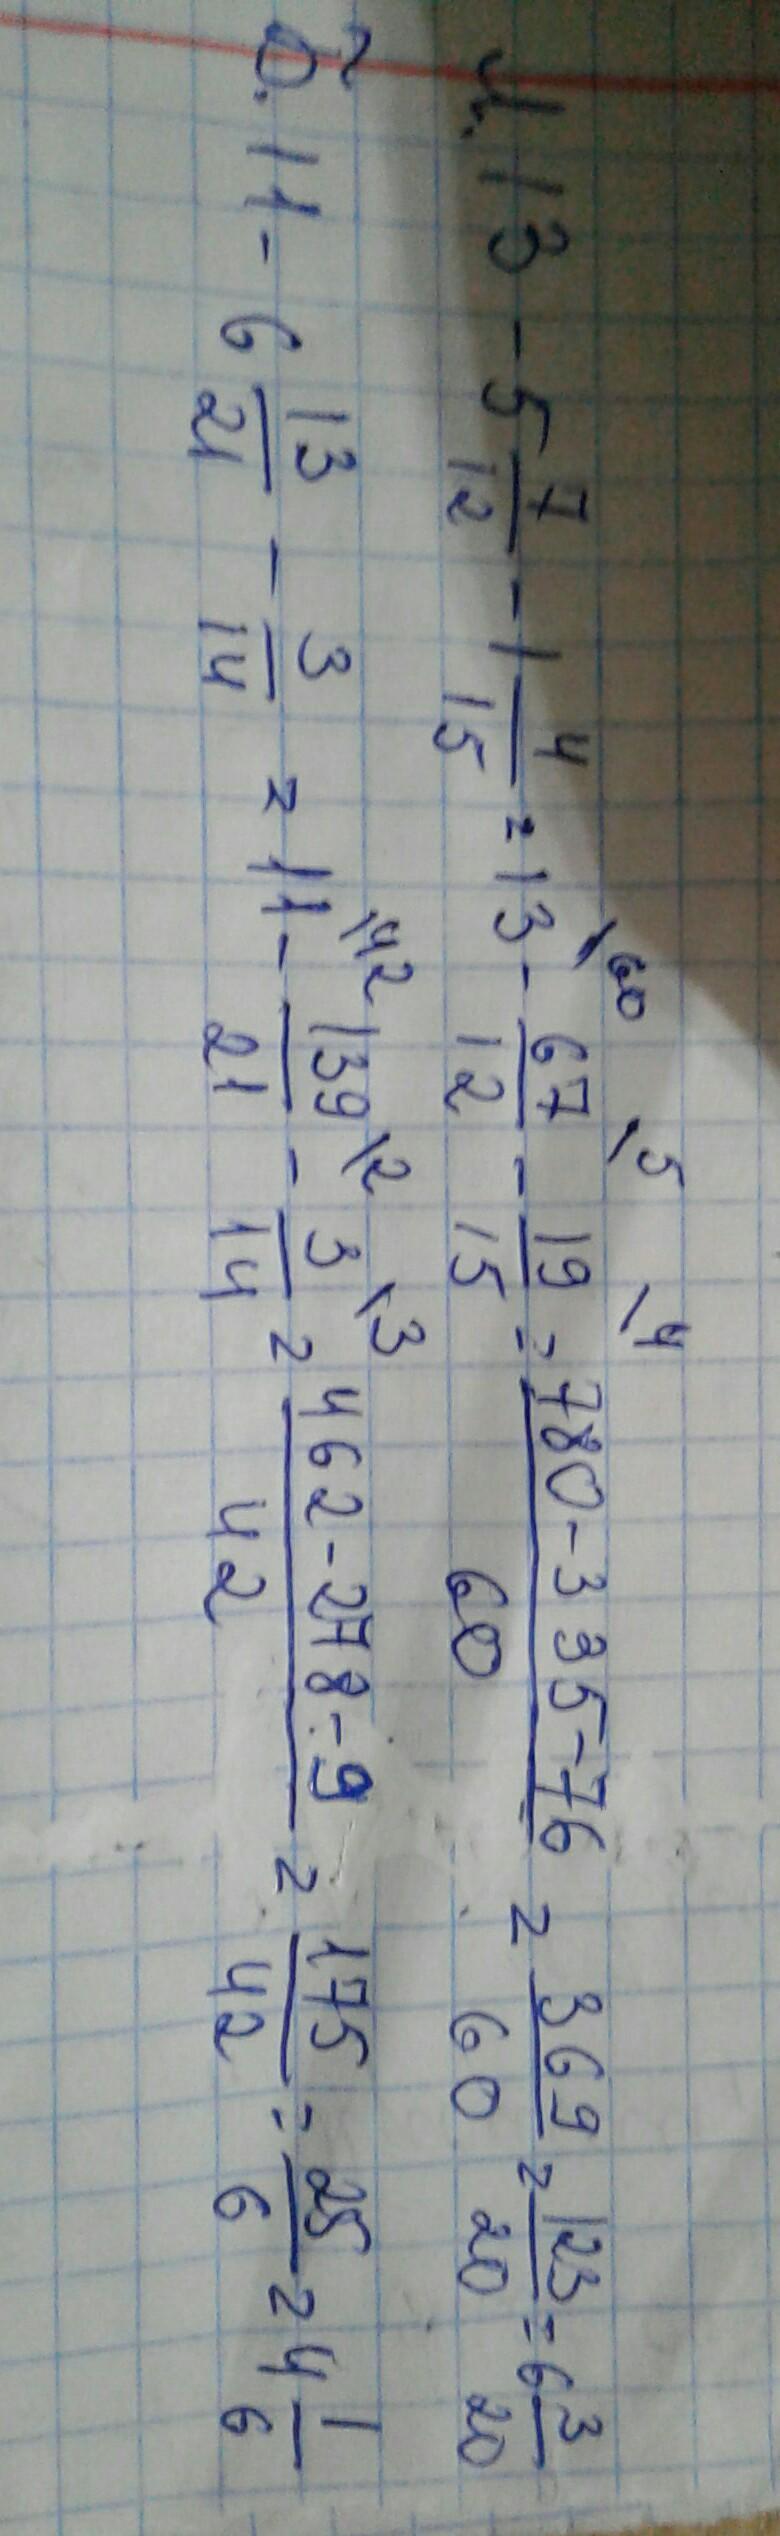 и. 13 - 5 7/12 - 1 4/15 = 13 \60 - 67/12 \5 - 19/15 \4 = 780-335-76/60 = 369/60 = 123/20 = 6 3/20
й. 11 - 6 13/21 - 3/14 = 11 \42 - 139/21 \2 - 3/14 \3 = 462-278-9/42 = 175/42 = 25/6 = 4 1/6